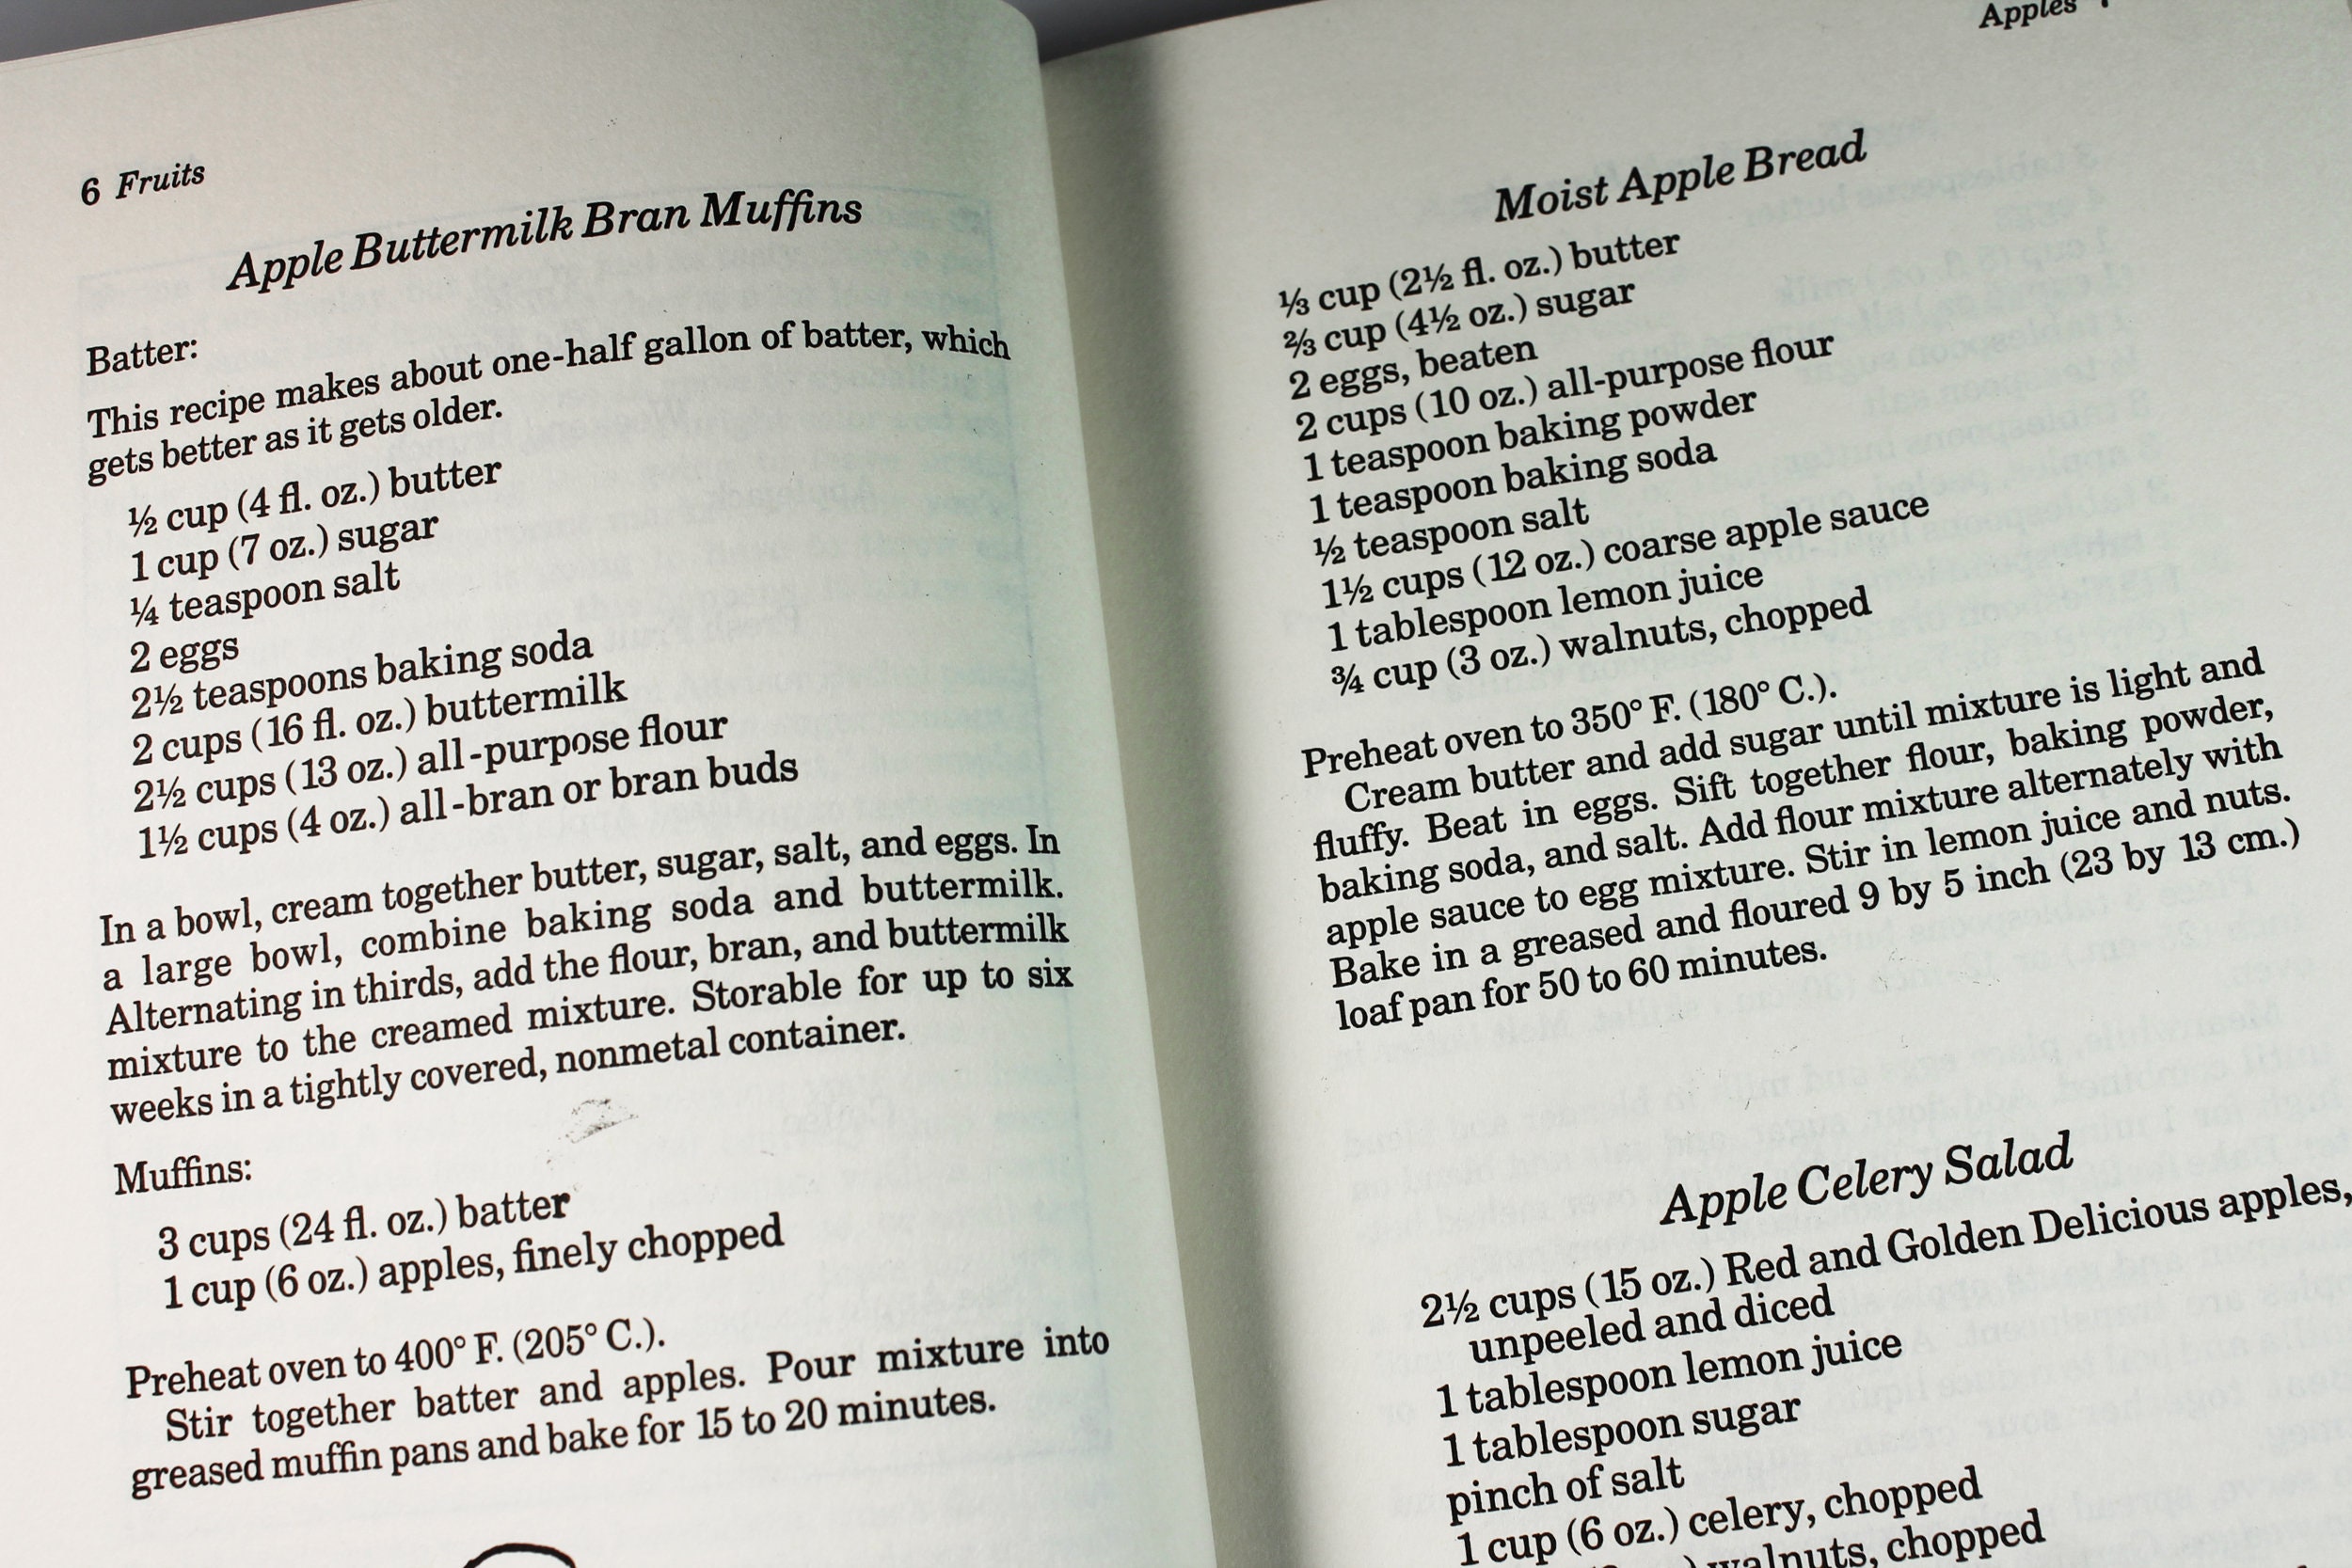 6 Fruits
Apple Buttermilk Bran Muffins
Batter:
This recipe makes about one-half gallon of batter, which
gets better as it gets older.
½ cup (4 fl. oz.) butter
1 cup (7 oz.) sugar
¼ teaspoon salt
2 eggs
2½ teaspoons baking soda
2 cups (16 fl. oz.) buttermilk
2½ cups (13 oz.) all-purpose flour
1½ cups (4 oz.) all-bran or bran buds
In a bowl, cream together butter, sugar, salt, and eggs. In
a large bowl, combine baking soda and buttermilk.
Alternating in thirds, add the flour, bran, and buttermilk
mixture to the creamed mixture. Storable for up to six
weeks in a tightly covered, nonmetal container.
Muffins:
3 cups (24 fl. oz.) batter
1 cup (6 oz.) apples, finely chopped
Preheat oven to 400° F. (205° C.).
Stir together batter and apples. Pour mixture into
greased muffin pans and bake for 15 to 20 minutes.
Apples
Moist Apple Bread
⅓ cup (2½ fl. oz.) butter
⅔ cup (4½ oz.) sugar
2 eggs, beaten
2 cups (10 oz.) all-purpose flour
1 teaspoon baking powder
1 teaspoon baking soda
½ teaspoon salt
1½ cups (12 oz.) coarse apple sauce
1 tablespoon lemon juice
¾ cup (3 oz.) walnuts, chopped
Preheat oven to 350° F. (180° C.).
Cream butter and add sugar until mixture is light and
fluffy. Beat in eggs. Sift together flour, baking powder,
baking soda, and salt. Add flour mixture alternately with
apple sauce to egg mixture. Stir in lemon juice and nuts.
Bake in a greased and floured 9 by 5 inch (23 by 13 cm.)
loaf pan for 50 to 60 minutes.
Apple Celery Salad
2½ cups (15 oz.) Red and Golden Delicious apples,
unpeeled and diced
1 tablespoon lemon juice
1 tablespoon sugar
pinch of salt
1 cup (6 oz.) celery, chopped
walnuts, chopped